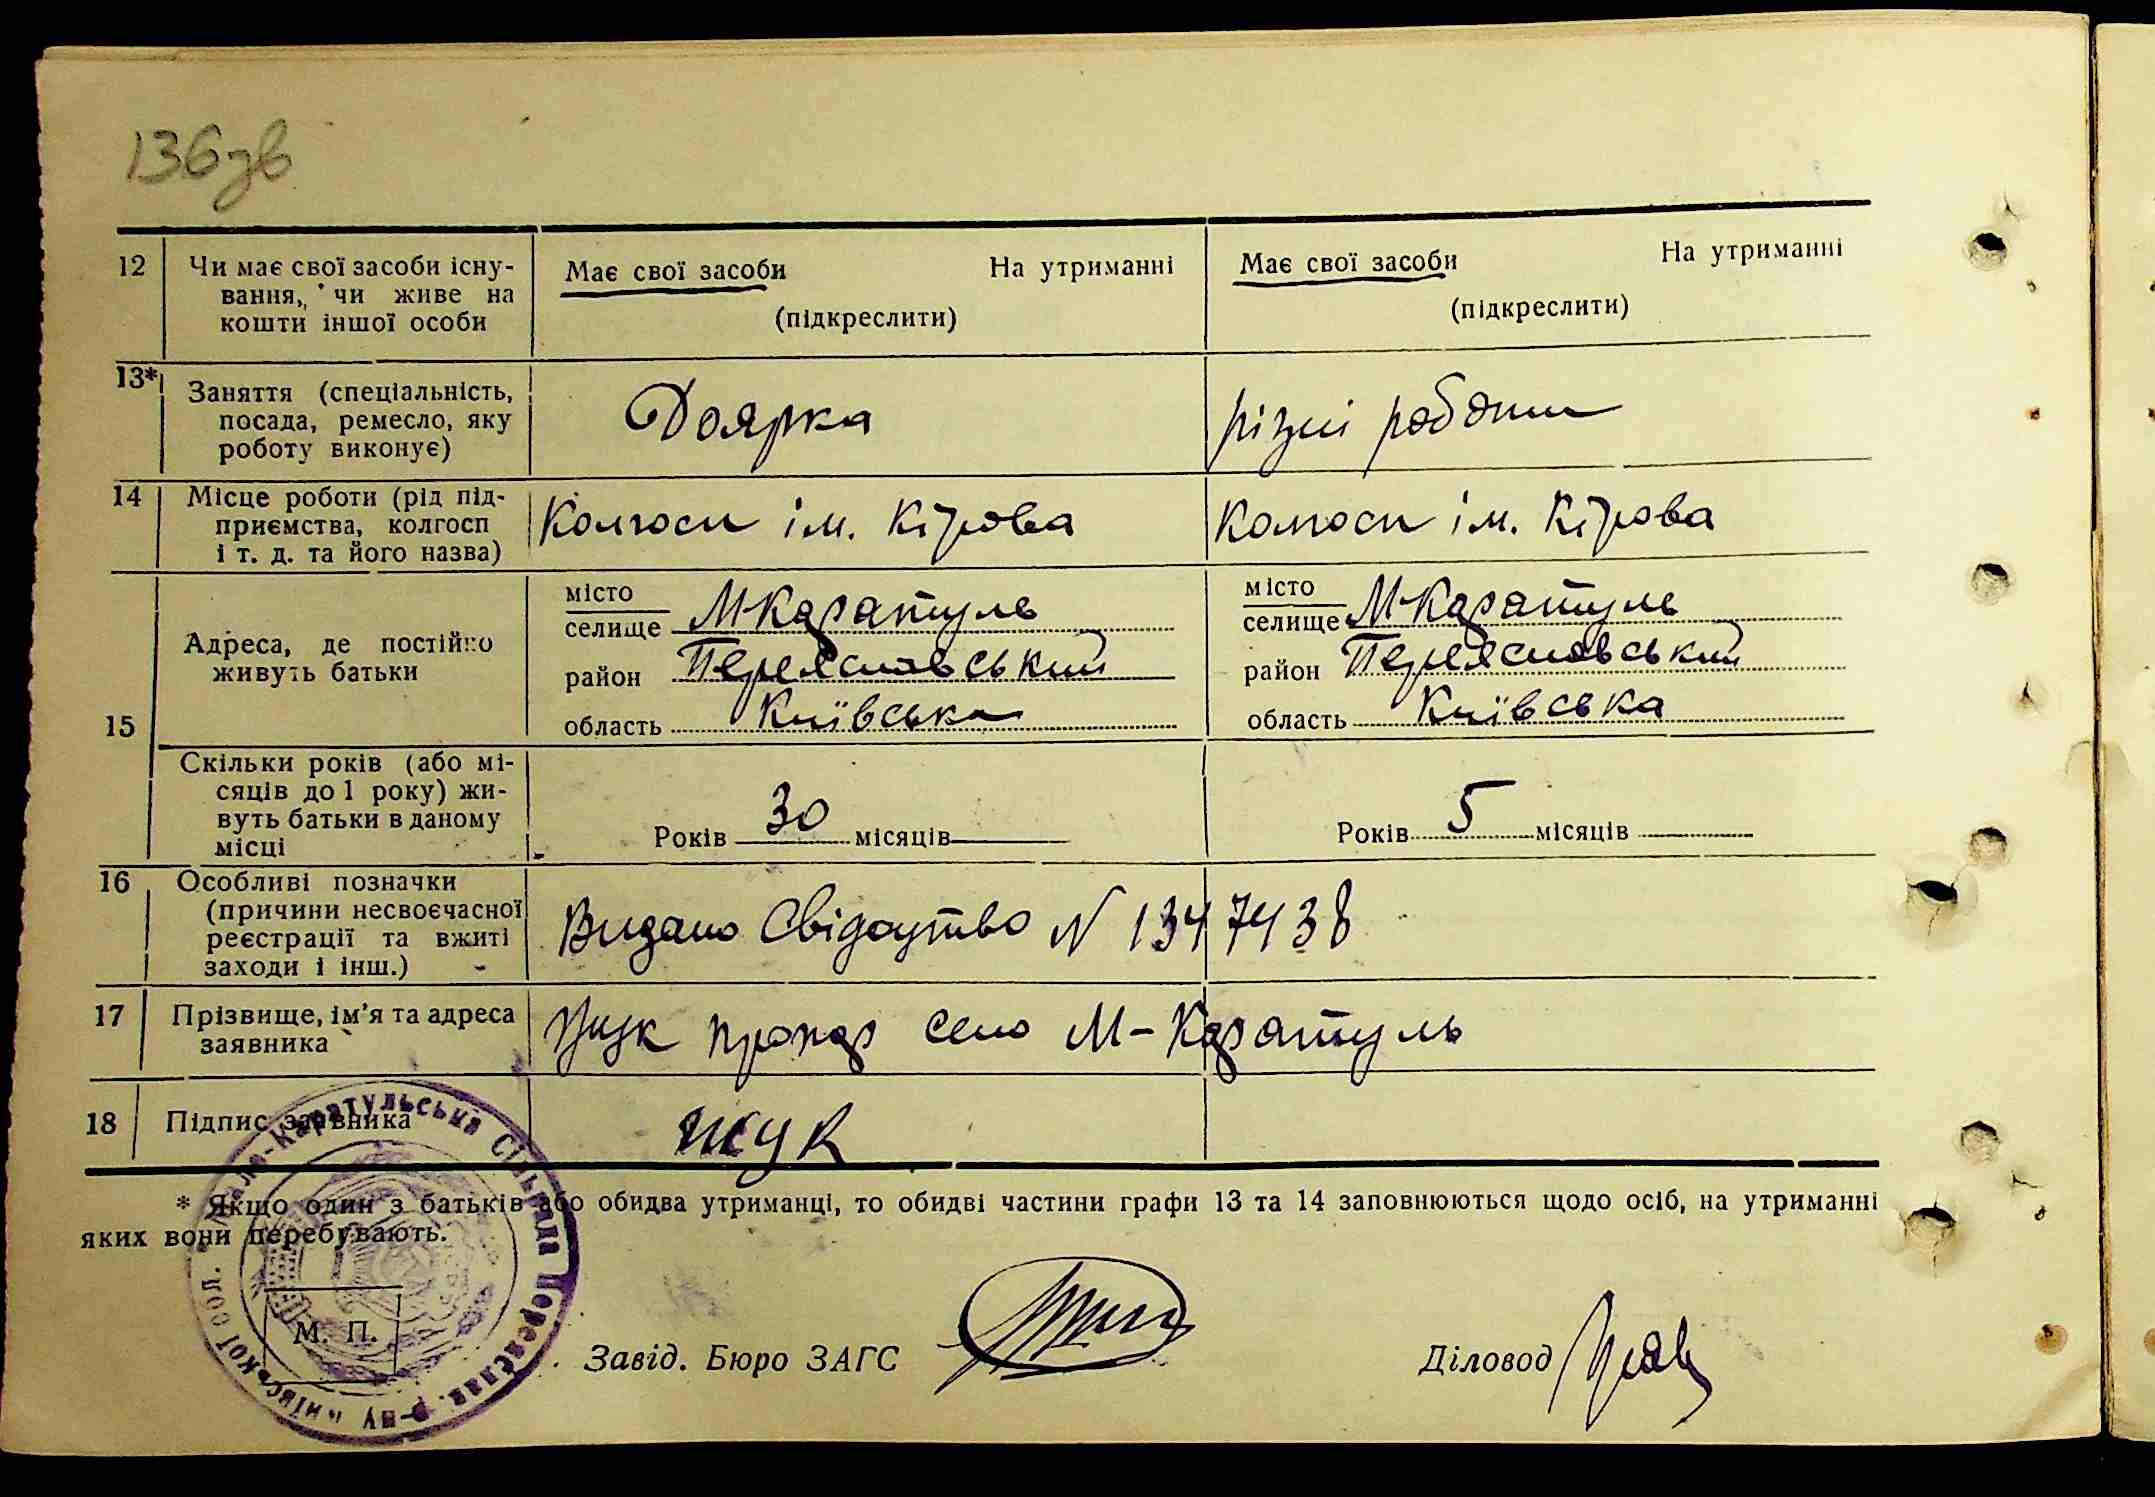 136зв
12 Чи має свої засоби існу-
вання, чи живе на
кошти іншої особи
Має свої засоби На утриманні
(підкреслити)
Має свої засоби На утриманні
(підкреслити)
13* Заняття (спеціальність,
посада, ремесло, яку
роботу виконує)
Доярка
різні роботи
14 Місце роботи (рід під-
приємства, колгосп
і т. д. та його назва)
Колгосп ім. Кірова
Колгосп ім. Кірова
15 Адреса, де постійно
живуть батьки
місто
селище МКаратуль
район Переяславський
область Київська
місто
селище МКаратуль
район Переяславський
область Київська
Скільки років (або мі-
сяців до 1 року) жи-
вуть батьки в даному
місці
Років 30 місяців
Років 5 місяців
16 Особливі позначки
(причини несвоєчасної
реєстрації та вжиті
заходи і інш.)
Видано Свідоцтво N 1347438
17 Прізвище, ім'я та адреса
заявника
село М-Каратуль
18 Підпис заявника
Жук
* Якщо один з батьків або обидва утриманці, то обидві частини графи 13 та 14 заповнюються щодо осіб, на утриманні
яких вони перебувають.
Мало-Каратульська Сільрада Переяслав. р-ну Київської обл.
М. П.
Завід. Бюро ЗАГС
Діловод